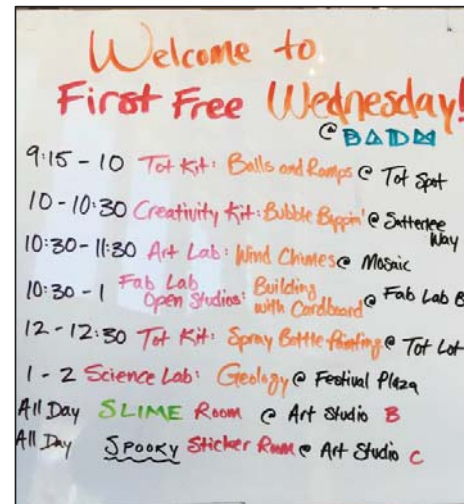 Welcome to
First Free Wednesday!
@ BADM
9:15 - 10 Tot Kit: Balls and Ramps @ Tot Spot
10 - 10:30 Creativity Kit: Bubble Boppin' @ Satterlee Way
10:30 - 11:30 Art Lab: Wind Chimes @ Mosaic
10:30 - 1 Fab Lab Open Studios: Building with Cardboard @ Fab Lab B
12 - 12:30 Tot Kit: Spray Bottle Painting @ Tot Lot
1 - 2 Science Lab: Geology @ Festival Plaza
All Day SLIME Room @ Art Studio B
All Day Spooky Sticker Room @ Art Studio C